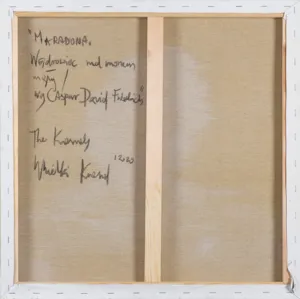 "MARADONA.
Wędrowiec nad morzem
mgły /
wg Caspar David Friedrich"
The Krasnals
Whielki Krasnal 2020